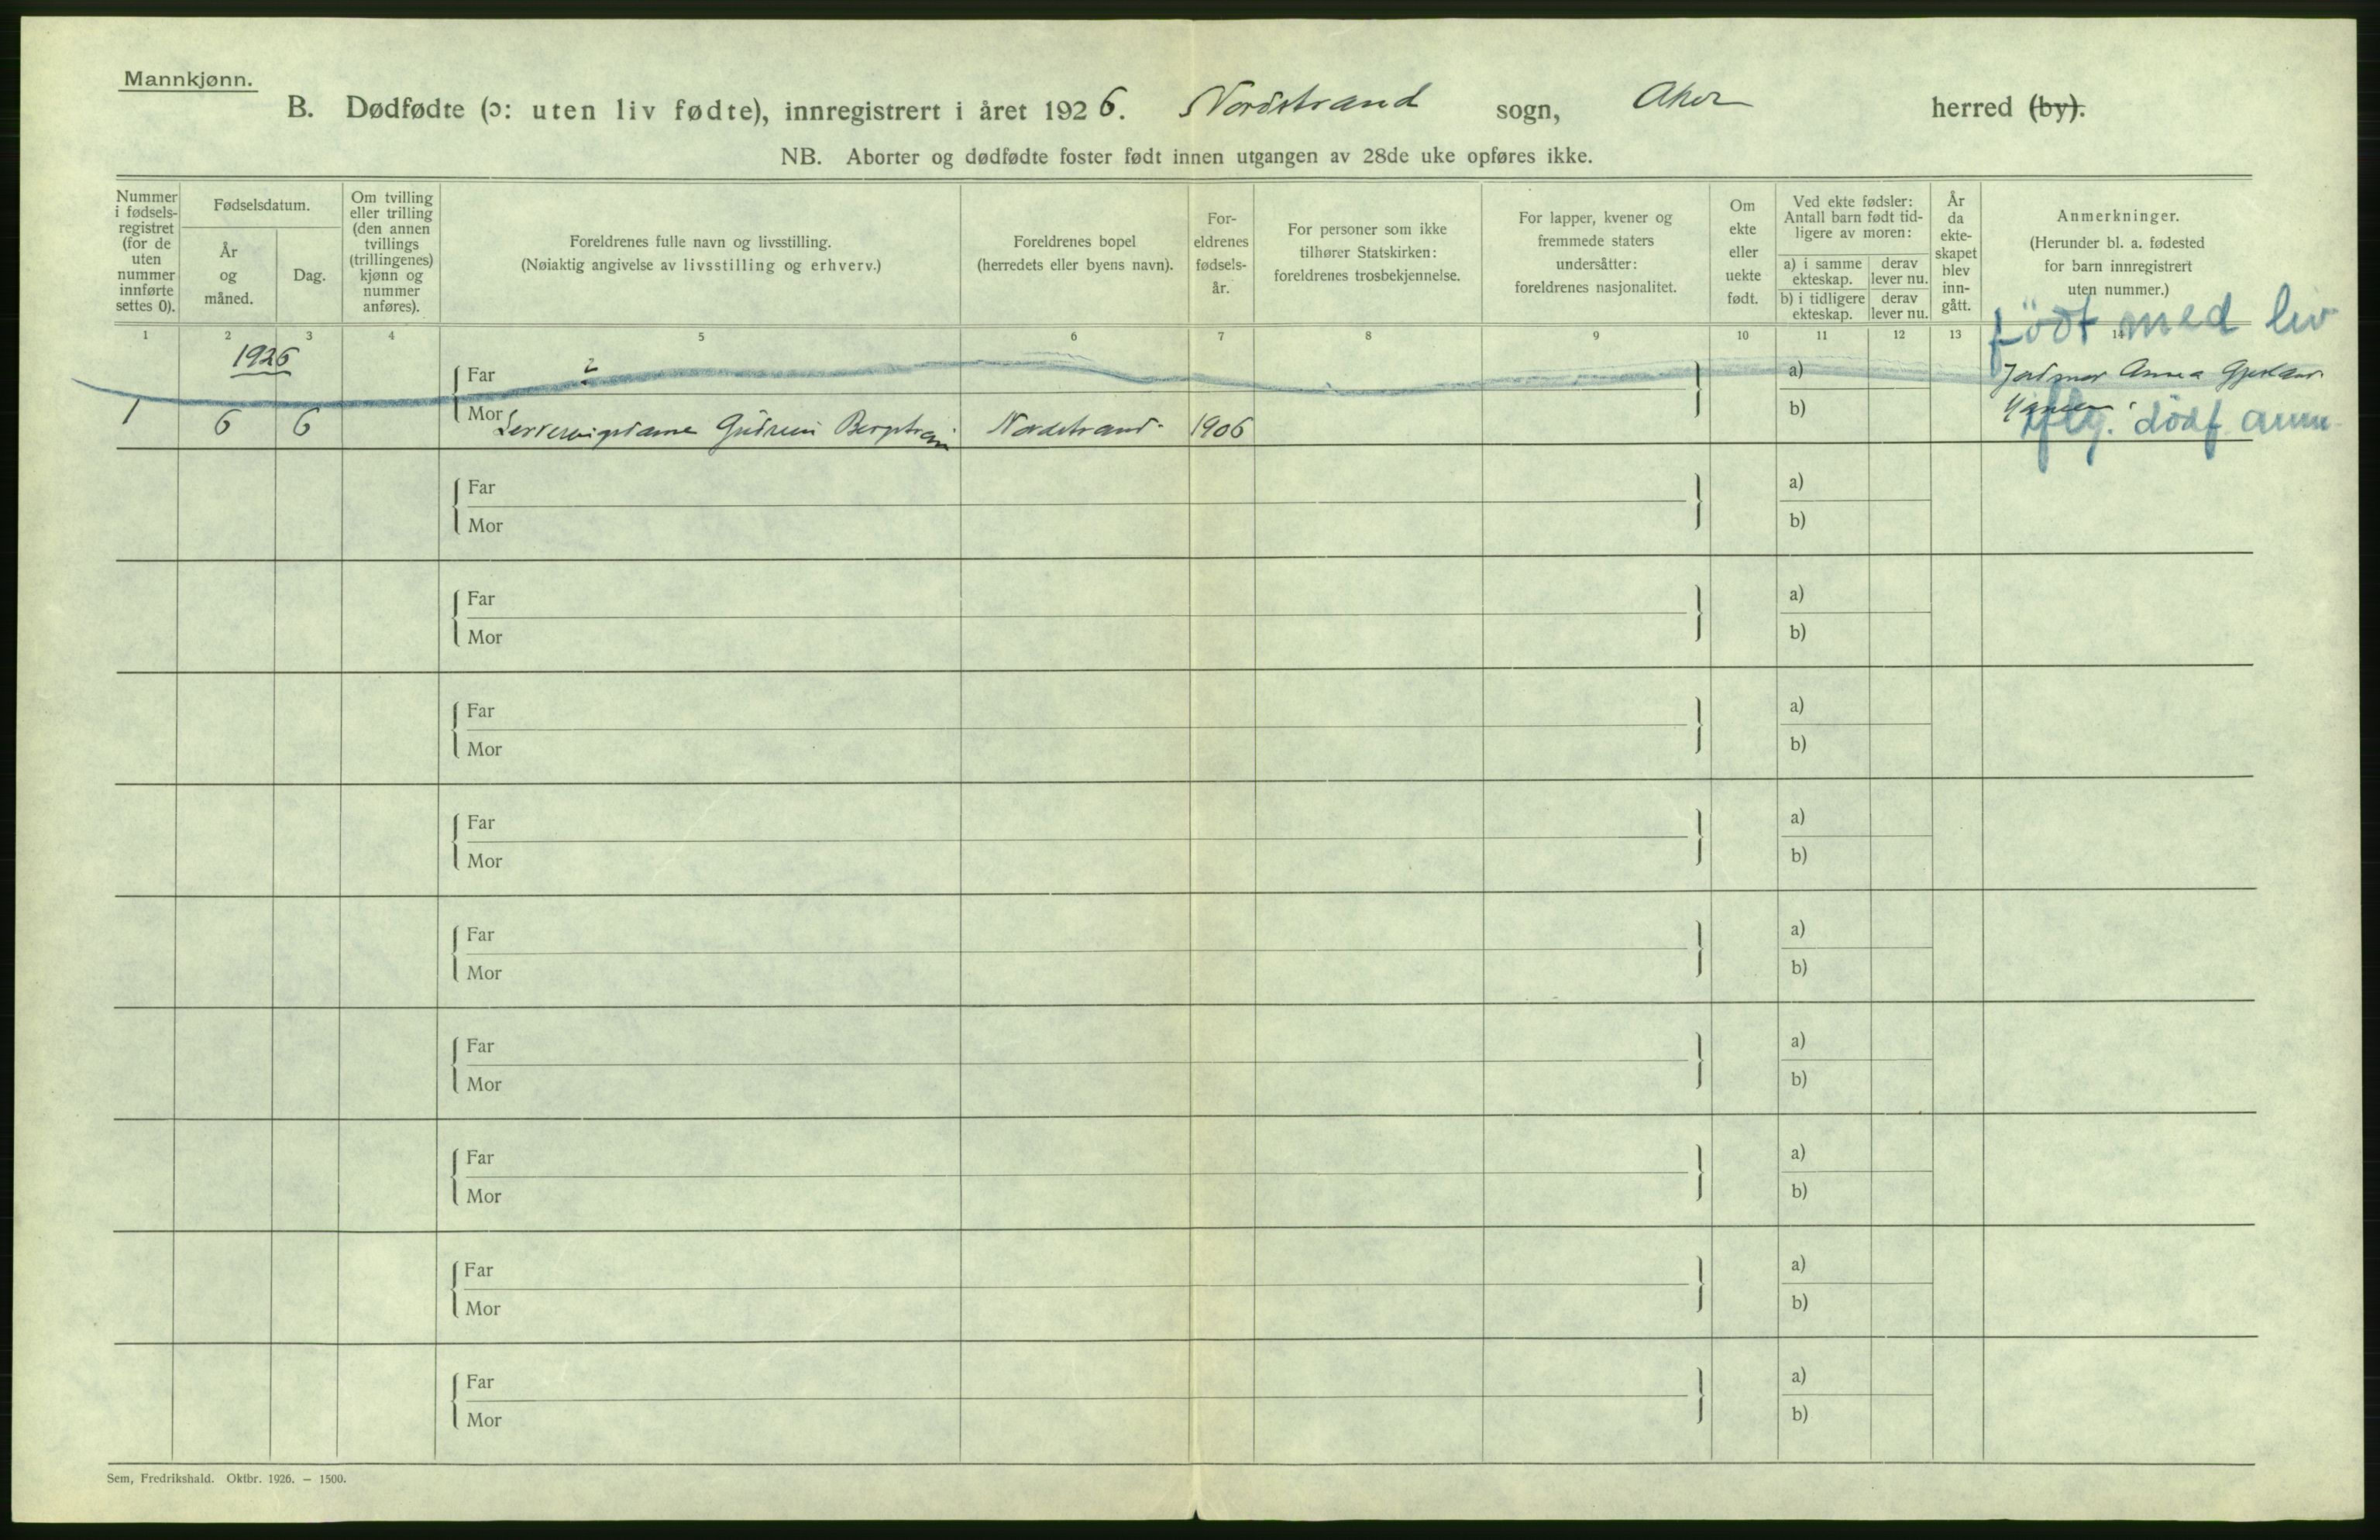 Mannkjønn.
B. Dødfødte (ɔ: uten liv fødte), innregistrert i året 1926. Nordstrand sogn, Aker herred (by).
NB. Aborter og dødfødte foster født innen utgangen av 28de uke opføres ikke.
Nummer
i fødsels-
registret
(for de
uten
nummer
innførte
settes 0).
Fødselsdatum.
År
og
måned.
Dag.
Om tvilling
eller trilling
(den annen
tvillings
(trillingenes)
kjønn og
nummer
anføres).
Foreldrenes fulle navn og livsstilling.
(Nøiaktig angivelse av livsstilling og erhverv.)
Foreldrenes bopel
(herredets eller byens navn).
For-
eldrenes
fødsels-
år.
For personer som ikke
tilhører Statskirken:
foreldrenes trosbekjennelse.
For lapper, kvener og
fremmede staters
undersåtter:
foreldrenes nasjonalitet.
Om
ekte
eller
uekte
født.
Ved ekte fødsler:
Antall barn født tid-
ligere av moren:
a) i samme
ekteskap.
derav
lever nu.
b) i tidligere
ekteskap.
derav
lever nu.
År
da
ekte-
skapet
blev
inn-
gått.
Anmerkninger.
(Herunder bl. a. fødested
for barn innregistrert
uten nummer.)
1 2 3 4 5 6 7 8 9 10 11 12 13 14
født med liv
1926
Far ? a)
Jordmor Anna
1 6 6 Mor Serveringsdame Gudrun Nordstrand 1906 b)
iflg. dødf. anm.
Far a)
Mor b)
Far a)
Mor b)
Far a)
Mor b)
Far a)
Mor b)
Far a)
Mor b)
Far a)
Mor b)
Far a)
Mor b)
Far a)
Mor b)
Far a)
Mor b)
Sem, Fredrikshald. Oktbr. 1926. — 1500.